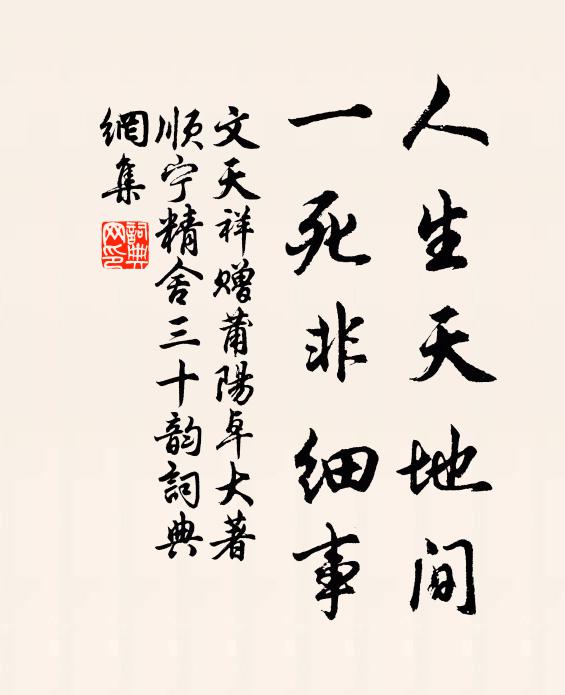 人生天地间
一死非细事
文天祥赠莆陽卓大著
顺宁精舍三十韵詞典
網集
詞典網印